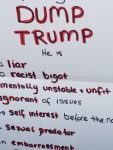 DUMP
TRUMP
He is
liar
racist bigot
mentally unstable + unfit
ignorant of issues
self interest before the na
sexual predator
an embarrassment